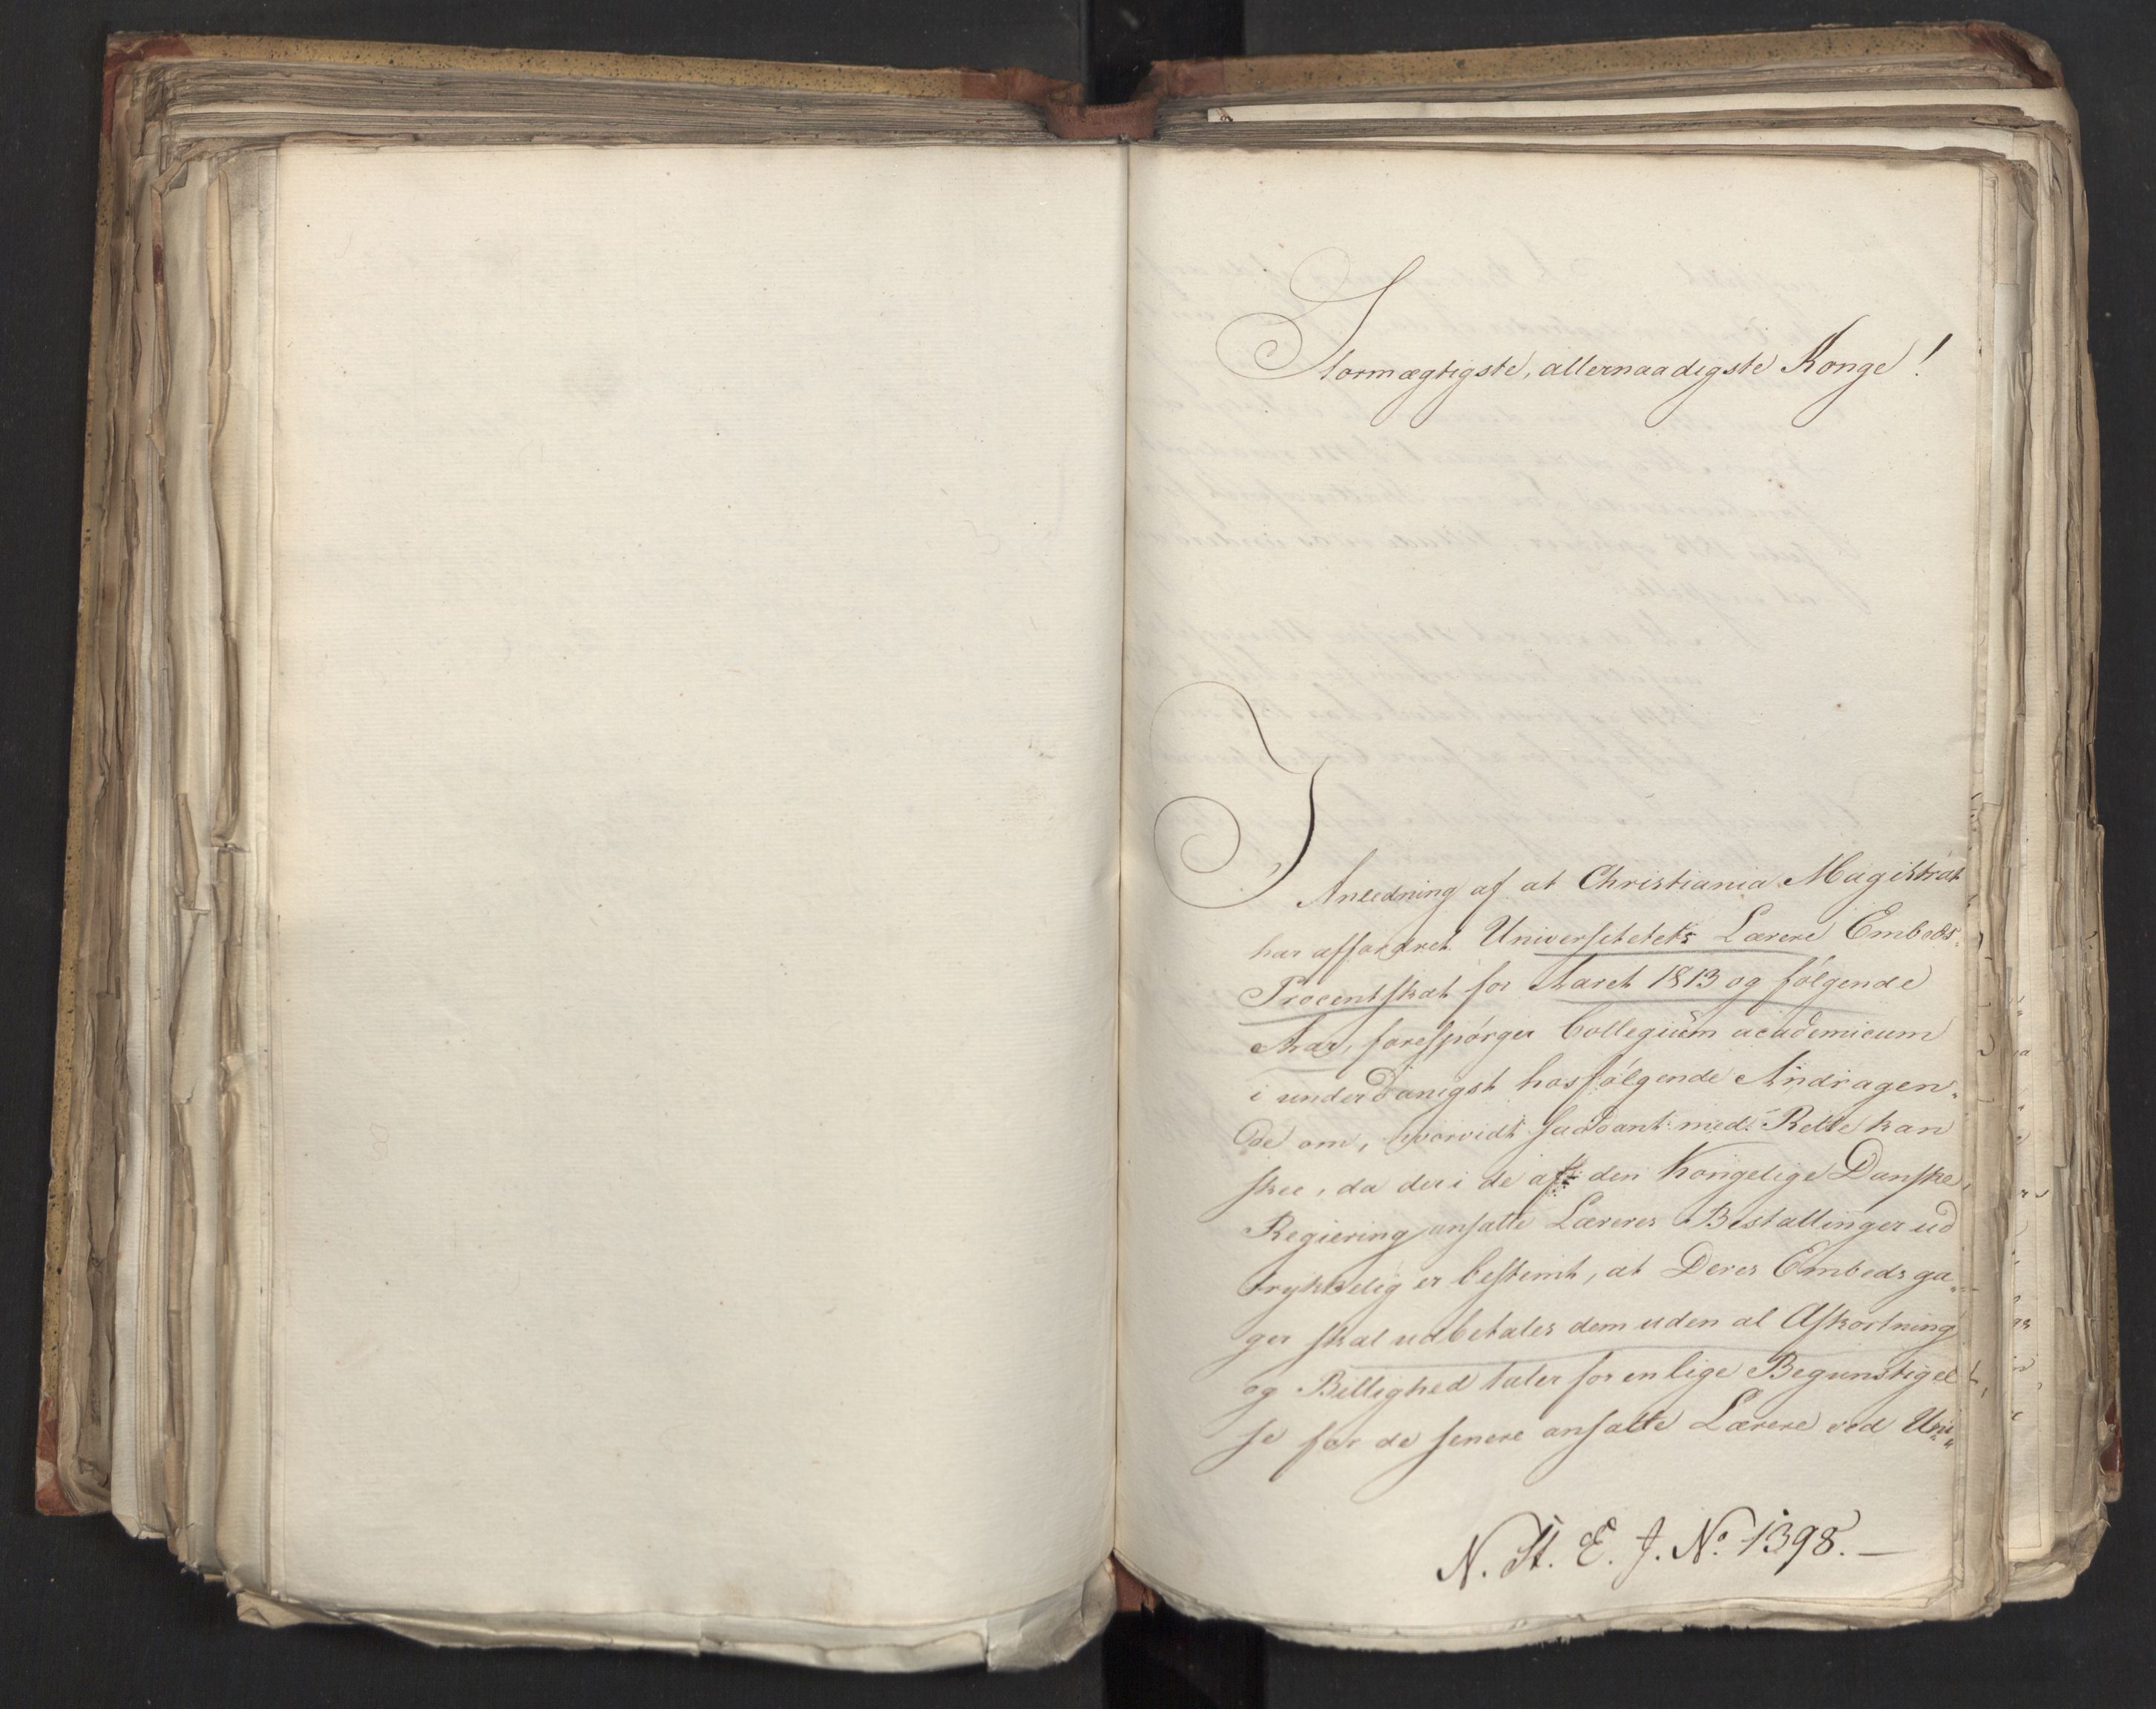 Stormægtigste, allernaadigste Konge!
I Anledning af at Christiania Magistrat
har affordret Universitetets Lærere Embeds-
Procentskat for Aaret 1813 og følgende
Aar, forespørger Collegium academicum
i underdanigst hosfølgende Andragen-
de om, hvorvidt saadant med Rette kan
skee, da der i de af den Kongelige Danske
Regiering ansatte Læreres Bestallinger ud
trykkelig er bestemt, at Deres Embeds ga-
ger skal udbetales dem uden al Afkortning
og Billighed taler for en lige Begunstigel
se for de senere ansatte Lærere ved Uni-
N. St. E. J. No. 1398.—